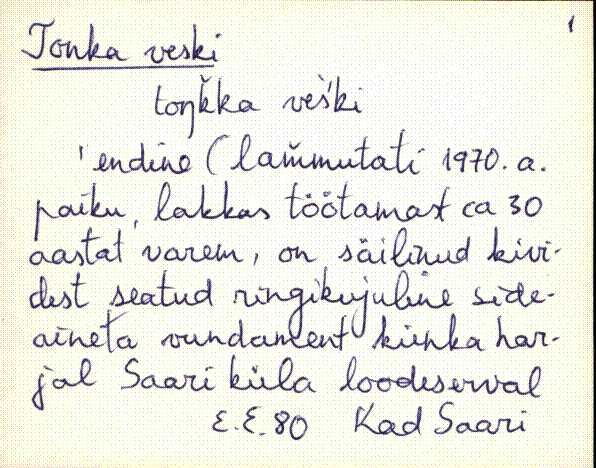 1
Tonka veski
toŋk̆ka veš́ki
'endine (lam̆mutati 1970. a.
paiku, lakkas töötamast ca 30
aastat varem, on säilinud kivi-
dest seatud ringikujuline side-
aineta vundament künka har-
jal Saariküla loodeserval
E.E. 80 Kad Saari